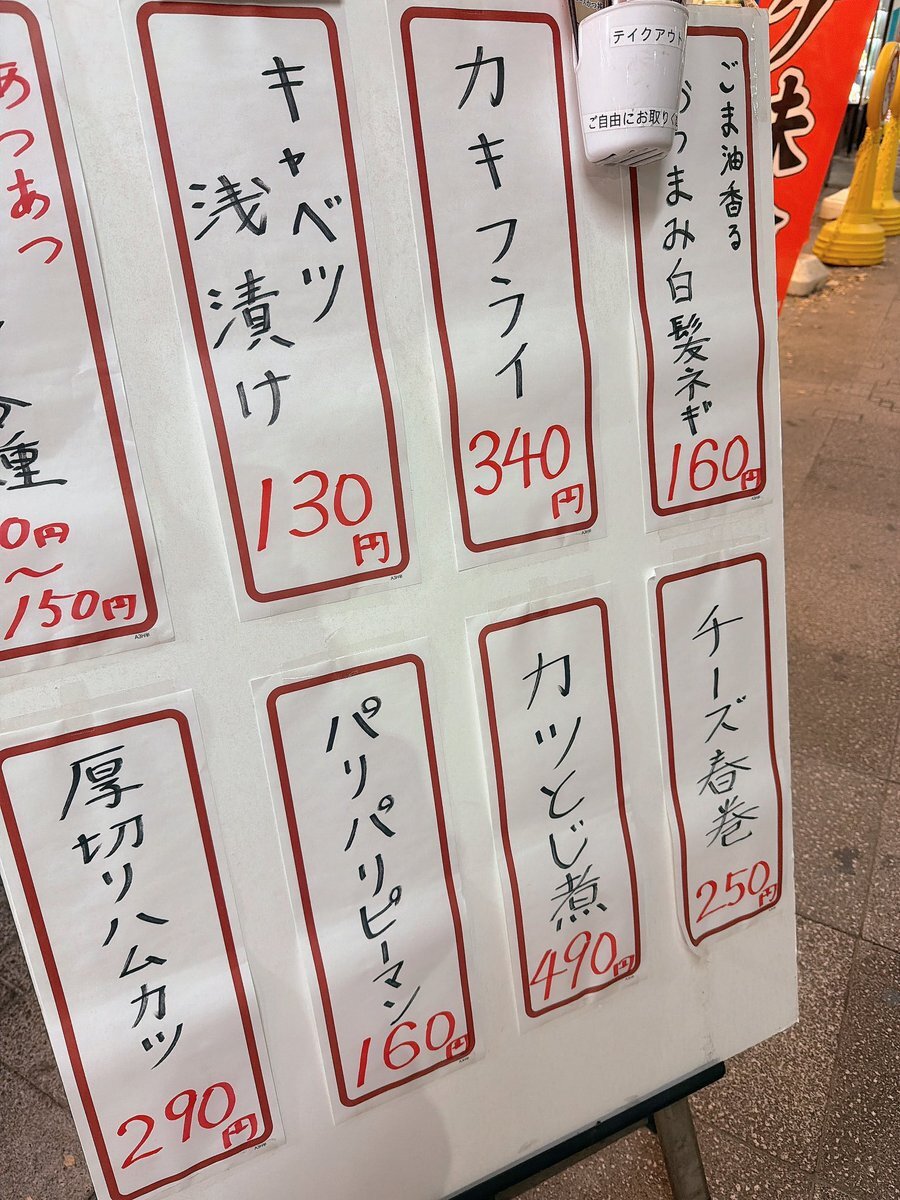 ごま油香る
おつまみ白髪ネギ
160円
カキフライ
340円
キャベツ
浅漬け
130円
あつあつ
種
0円
〜
150円
チーズ春巻
250円
カツとじ煮
490円
パリパリピーマン
160円
厚切りハムカツ
290円
テイクアウト
ご自由にお取りく
味